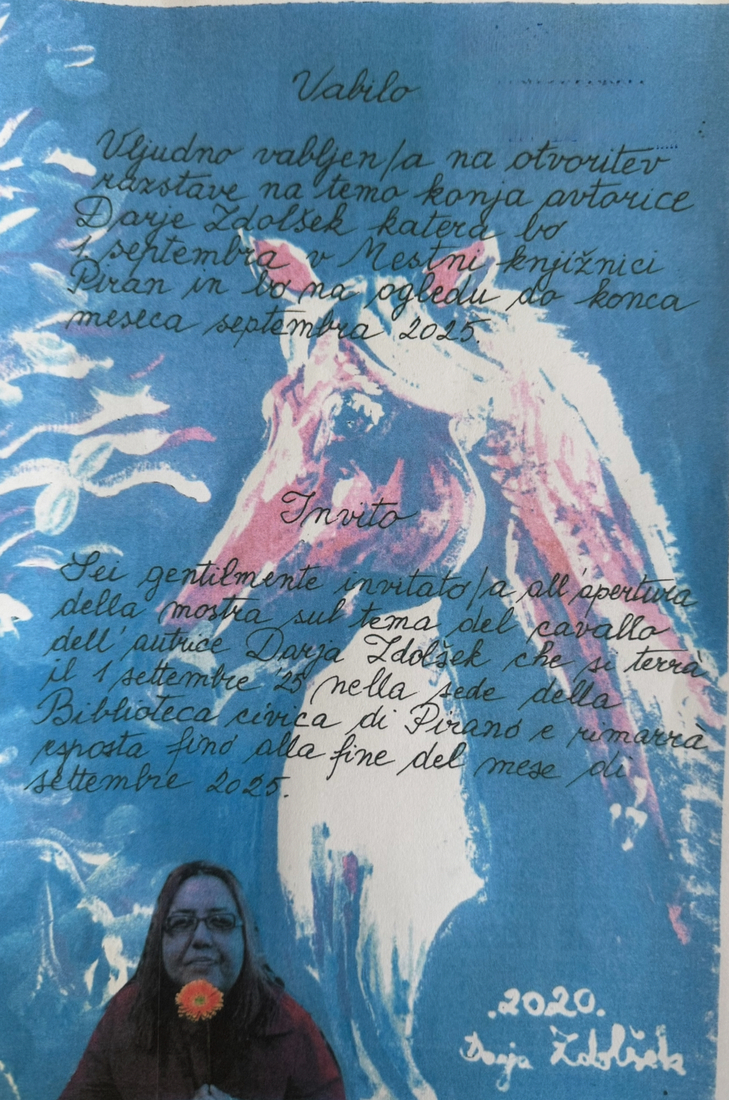 Vabilo
Vljudno vabljen/a na otvoritev
razstave na temo konja avtorice
Darje Zdolšek katera bo
1 septembra v Mestni knjižnici
Piran in bo na ogledu do konca
meseca septembra 2025.
Invito
Sei gentilmente invitato/a all'apertura
della mostra sul tema del cavallo
dell'autrice Darja Zdolšek che si terrà
il 1 settembre 25 nella sede della
Biblioteca civica di Pirano e rimarrà
esposta fino alla fine del mese di
settembre 2025.
.2020.
Darja Zdolšek